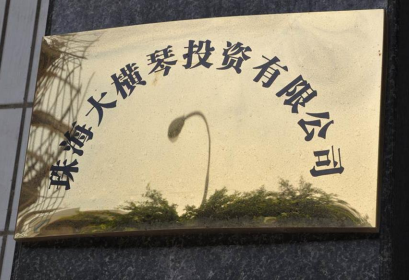 珠海大横琴投资有限公司